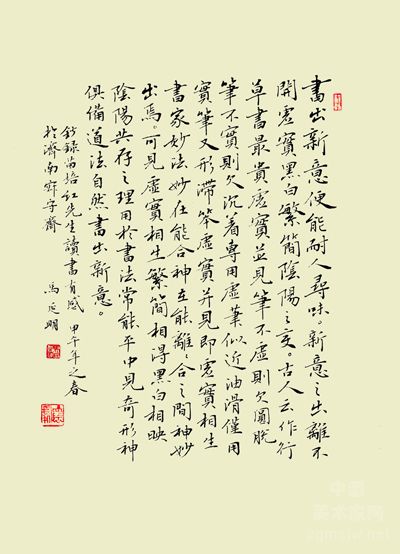 書出新意便能耐人尋味。新意之出離不
開虛實黑白繁簡陰陽之变。古人云作行
草書最貴虛實並見筆不虛則欠圓脫
筆不實則欠沉着專用虛筆似近油滑僅用
實筆又形滯笨虛實并見即虛實相生
書家妙法妙在能合神在能離離合之間神妙
出焉。可見虛實相生繁簡相得黑白相映
陰陽共存之理用於書法常能平中見奇形神
俱備道法自然書出新意。
鈔錄苗培红先生讀書有感 甲午年之春
於濟南齋 馬延明
中国
美术家网
2gmsjw.net